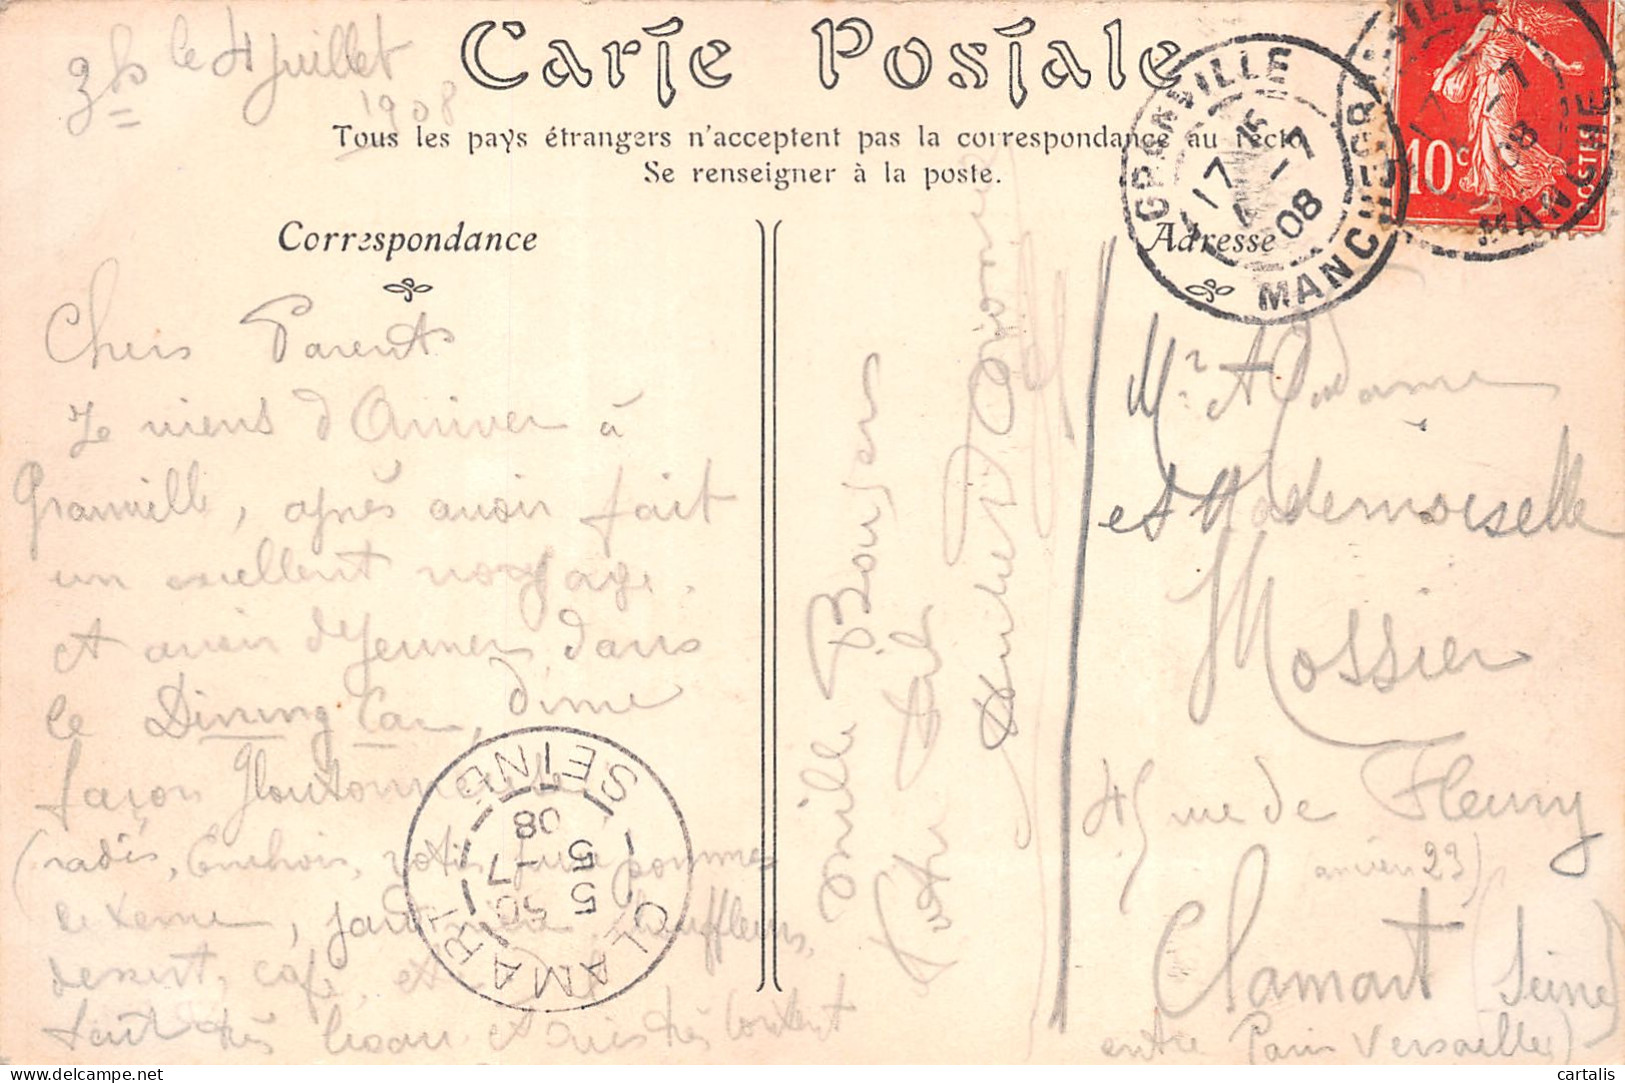 3h le 4 Juillet
1908
Carte Postale
Tous les pays étrangers n'acceptent pas la correspondance au recto
Se renseigner à la poste.
Correspondance
Chers Parents
Je viens d'Arriver à
Granville, après avoir fait
un excellent voyage.
et avoir déjeuner dans
le Dining Car, d'une
façon gloutonne
(radis, rotis, pommes
de terre,
dessert, café, et
tout très beau et suis très content
mille Baisers
Votre fils
Adresse
Mr & Madame
et Mademoiselle
Mossier
45 rue de Fleury
(ancien 23)
Clamart (Seine)
entre Paris Versailles)
GRANVILLE
17 15
4 -7
08
MANCHE
GRANVILLE
17
-7
08
MANCHE
10c
POSTES
CLAMART
5 50
5 -7
08
SEINE
www.delcampe.net
cartalis